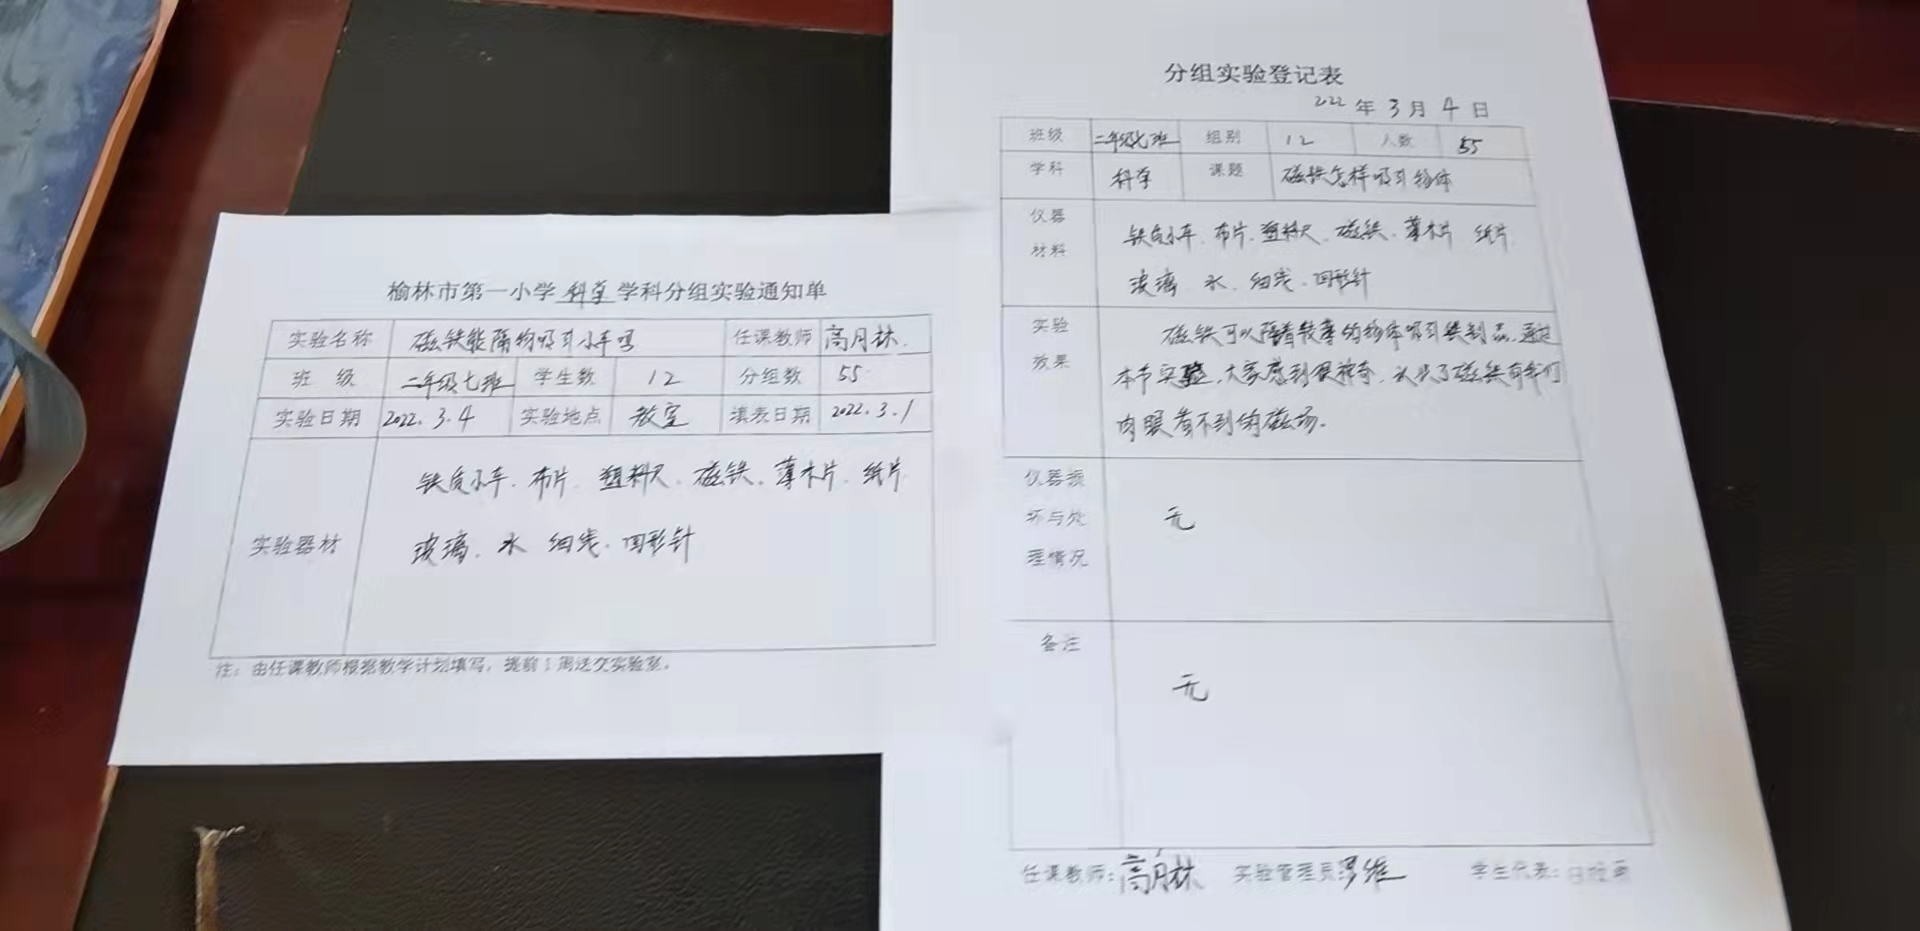 榆林市第一小学科学学科分组实验通知单
实验名称 磁铁能隔物吸引小车吗 任课教师 高月林
班级 二年级七班 学生数 12 分组数 55
实验日期 2022.3.4 实验地点 教室 填表日期 2022.3.1
铁质小车、布片、塑料尺、磁铁、薄木片、纸片
实验器材
玻璃、水 细线、回形针
注：由任课教师根据教学计划填写，提前1周送交实验室。
分组实验登记表
2022年3月4日
班级 二年级七班 组别 12 人数 55
学科 科学 课题 磁铁怎样吸引物体
仪器材料
铁质小车、布片、塑料尺、磁铁、薄木片 纸片
玻璃、水、细线、回形针
实验效果
磁铁可以隔着较薄的物体吸引铁制品,通过
本节实验,大家感到很神奇,认识了磁铁有我们
肉眼看不到的磁场.
仪器损坏与处理情况
无
备注
无
任课教师：高月林 实验管理员 学生代表：